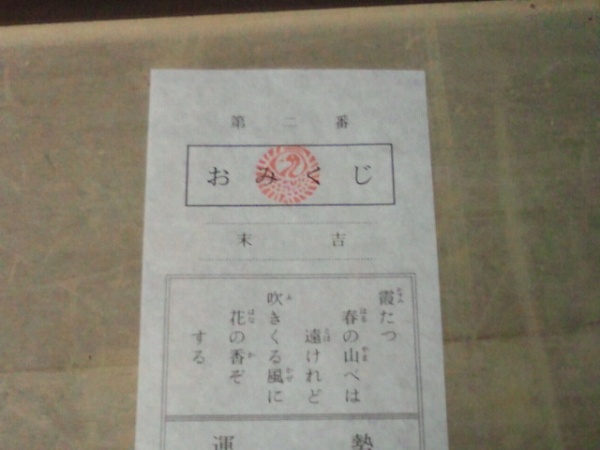 第二番
おみくじ
末吉
霞たつ
春の山べは
遠けれど
吹きくる風に
花の香ぞ
する
運勢